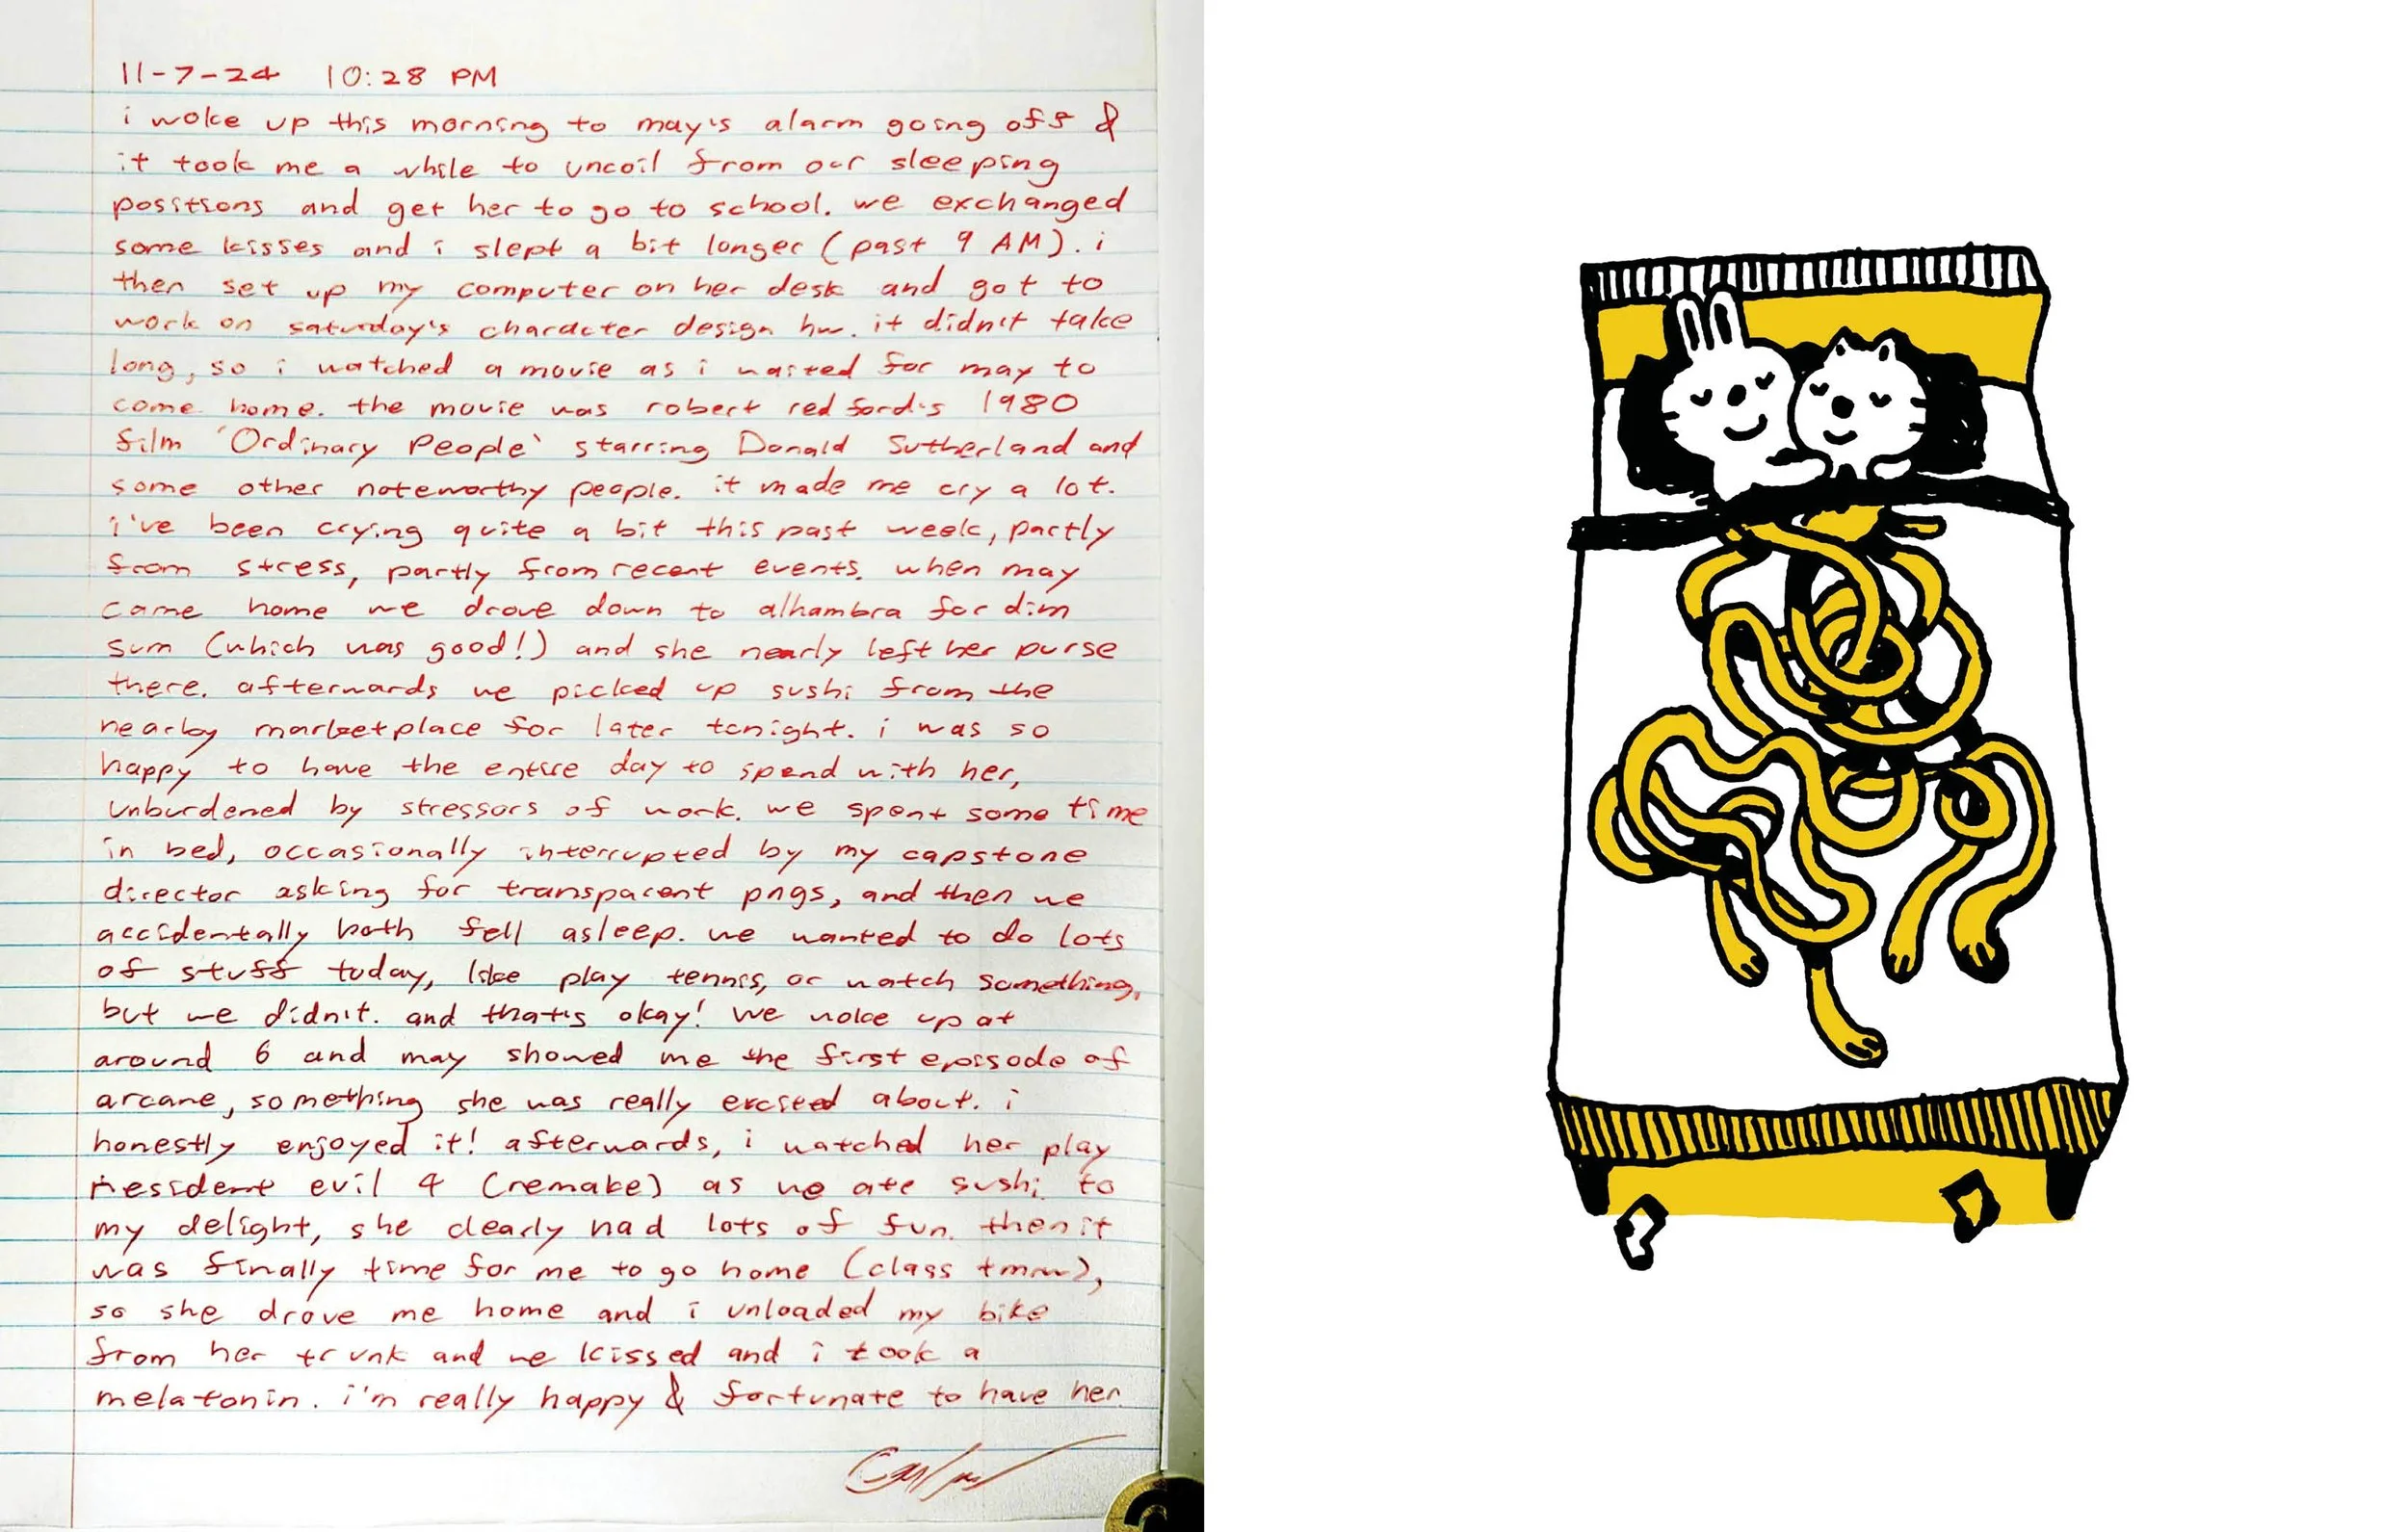 11-7-24 10:28 PM
i woke up this morning to may's alarm going off &
it took me a while to uncoil from our sleeping
positions and get her to go to school. we exchanged
some kisses and i slept a bit longer (past 9 AM). i
then set up my computer on her desk and got to
work on saturday's character design hw. it didn't take
long, so i watched a movie as i waited for may to
come home. the movie was robert redford's 1980
film 'Ordinary People' starring Donald Sutherland and
some other noteworthy people. it made me cry a lot.
i've been crying quite a bit this past week, partly
from stress, partly from recent events. when may
came home we drove down to alhambra for dim
sum (which was good!) and she nearly left her purse
there. afterwards we picked up sushi from the
nearby marketplace for later tonight. i was so
happy to have the entire day to spend with her,
unburdened by stressors of work. we spent some time
in bed, occasionally interrupted by my capstone
director asking for transparent pngs, and then we
accidentally both fell asleep. we wanted to do lots
of stuff today, like play tennis, or watch something,
but we didn't. and that's okay! we woke up at
around 6 and may showed me the first episode of
arcane, something she was really excited about. i
honestly enjoyed it! afterwards, i watched her play
resident evil 4 (remake) as we ate sushi to
my delight, she clearly had lots of fun. then it
was finally time for me to go home (class tmrw),
so she drove me home and i unloaded my bike
from her trunk and we kissed and i took a
melatonin. i'm really happy & fortunate to have her.